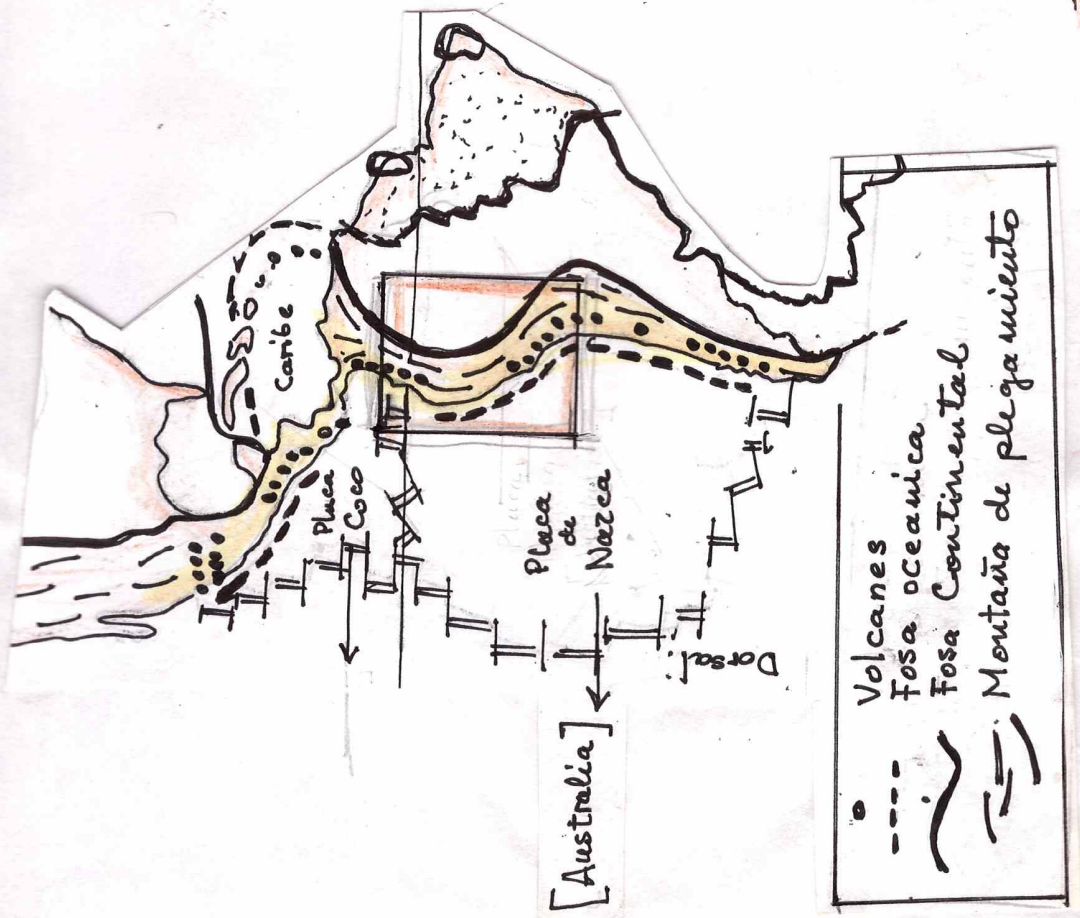 Caribe
Placa
Coco
Placa
de
Nazca
Dorsal.
[Australia]
Volcanes
Fosa oceanica
Fosa Continental
Montaña de plegamiento